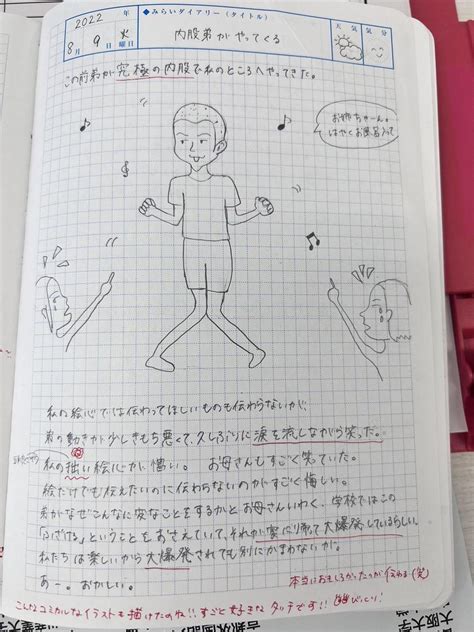 2022年
8月9日火曜日
◆みらいダイアリー(タイトル)
内股弟がやってくる
天気 気分
この前弟が究極の内股で私のところへやってきた。
お姉ちゃーん。
はやくお風呂入って
私の絵心では伝わってほしいものも伝わらないが、
弟の動きが少しきもち悪くて、久しぶりに涙を流しながら笑った。
私の拙い絵心が憎い。 お母さんもすごく笑っていた。
絵だけでも伝えたいのに伝わらないのがすごく悔しい。
弟がなぜこんなに変なことをするかとお母さんいわく、学校ではこの
「ふざける」ということをおさえていて、それが家に帰って大爆発しているらしい。
私たちは楽しいから大爆発されても別にかまわないが。
あー。おかしい。
本当におもしろかったのが伝わる(笑)
こんなコミカルなイラストも描けたのね!! すごと好きなタッチです!!
大阪大学